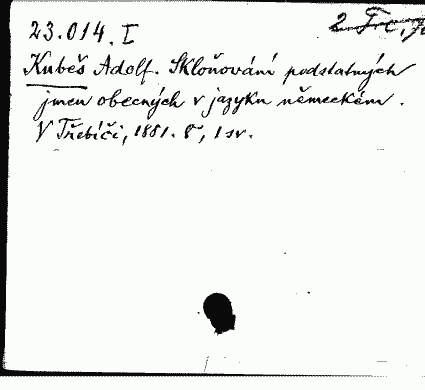 23.014. I
Kubeš Adolf. Skloňování podstatných
jmen obecných v jazyku německém.
V Třebíči, 1881. 8°, 1 sv.